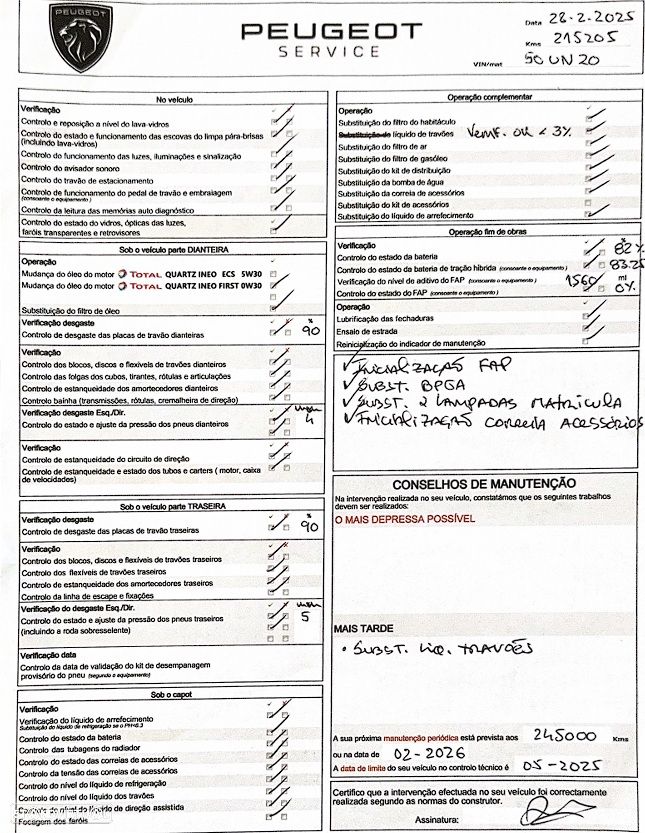 PEUGEOT
PEUGEOT
SERVICE
Data 28-2-2025
Kms 215205
VIN/mat 50 UN 20
No veículo
Verificação
Controlo e reposição a nível do lava-vidros
Controlo do estado e funcionamento das escovas do limpa pára-brisas
(incluindo lava-vidros)
Controlo do funcionamento das luzes, iluminações e sinalização
Controlo do avisador sonoro
Controlo do travão de estacionamento
Controlo de funcionamento do pedal de travão e embraiagem
(consoante o equipamento)
Controlo da leitura das memórias auto diagnóstico
Controlo do estado do vidros, ópticas das luzes,
faróis transparentes e retrovisores
Sob o veículo parte DIANTEIRA
Operação
Mudança do óleo do motor TOTAL QUARTZ INEO ECS 5W30
Mudança do óleo do motor TOTAL QUARTZ INEO FIRST 0W30
Substituição do filtro de óleo
Verificação desgaste %
Controlo de desgaste das placas de travão dianteiras 90
Verificação
Controlo dos blocos, discos e flexíveis de travões dianteiros
Controlo das folgas dos cubos, tirantes, rótulas e articulações
Controlo de estanqueidade dos amortecedores dianteiros
Controlo bainha (transmissões, rótulas, cremalheira de direção)
Verificação desgaste Esq./Dir. mm
Controlo do estado e ajuste da pressão dos pneus dianteiros 4
Verificação
Controlo de estanqueidade do circuito de direção
Controlo de estanqueidade e estado dos tubos e carters ( motor, caixa
de velocidades)
Sob o veículo parte TRASEIRA
Verificação desgaste %
Controlo de desgaste das placas de travão traseiras 90
Verificação
Controlo dos blocos, discos e flexíveis de travões traseiros
Controlo dos flexíveis de travões traseiros
Controlo de estanqueidade dos amortecedores traseiros
Controlo da linha de escape e fixações
Verificação do desgaste Esq./Dir. mm
Controlo do estado e ajuste da pressão dos pneus traseiros 5
(incluindo a roda sobresselente)
Verificação data
Controlo da data de validação do kit de desempanagem
provisório do pneu (segundo o equipamento)
Sob o capot
Verificação
Verificação do líquido de arrefecimento
Substituição do líquido de refrigeração se o PH<8.3
Controlo do estado da bateria
Controlo das tubagens do radiador
Controlo do estado das correias de acessórios
Controlo da tensão das correias de acessórios
Controlo do nível do líquido de refrigeração
Controlo do nível do líquido dos travões
Controlo do nível do líquido de direção assistida
Focagem dos faróis
Operação complementar
Operação
Substituição do filtro do habitáculo
Substituição do líquido de travões Verif. OK < 3%
Substituição do filtro de ar
Substituição do filtro de gasóleo
Substituição do kit de distribuição
Substituição da bomba de água
Substituição da correia de acessórios
Substituição do kit de acessórios
Substituição do líquido de arrefecimento
Operação fim de obras
Verificação %
Controlo do estado da bateria 82%
Controlo do estado da bateria de tração hibrida (consoante o equipamento) 83.25
Verificação do nível de aditivo do FAP (consoante o equipamento) 1560 ml
Controlo do estado do FAP (consoante o equipamento) 0%
Operação
Lubrificação das fechaduras
Ensaio de estrada
Reinicialização do indicador de manutenção
✓ INICIALIZAÇÃO FAP
✓ SUBST. BPGA
✓ SUBST. 2 LAMPADAS MATRICULA
✓ INICIALIZAÇÃO CORREIA ACESSÓRIOS
CONSELHOS DE MANUTENÇÃO
Na intervenção realizada no seu veículo, constatámos que os seguintes trabalhos
devem ser realizados:
O MAIS DEPRESSA POSSÍVEL
MAIS TARDE
• SUBST. LIQ. TRAVÕES
A sua próxima manutenção periódica está prevista aos 245000 Kms
ou na data de 02-2026
A data de limite do seu veículo no controlo técnico é 05-2025
Certifico que a intervenção efectuada no seu veículo foi correctamente
realizada segundo as normas do construtor.
Assinatura: